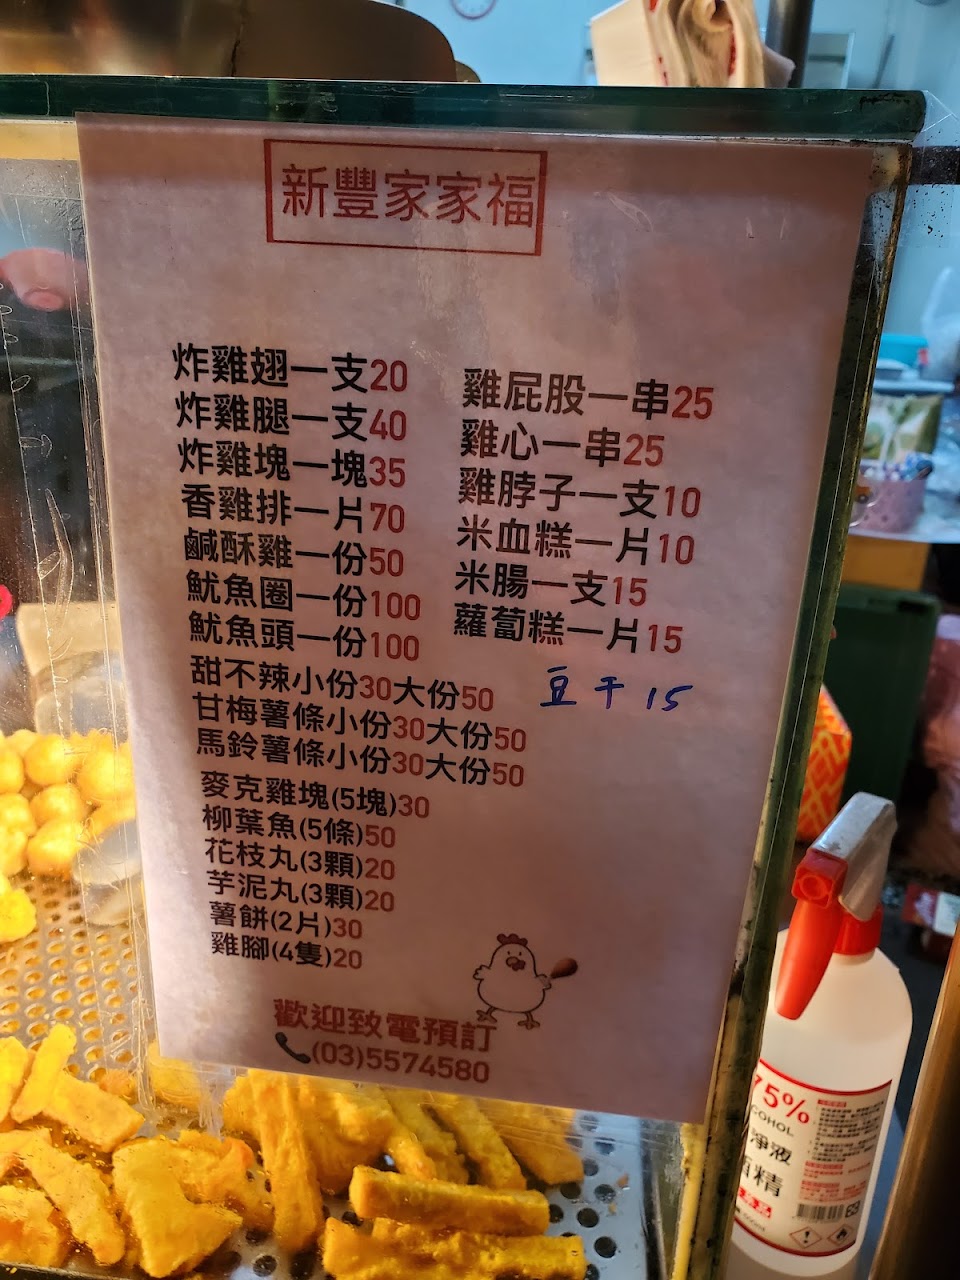 新豐家家福
炸雞翅一支20
炸雞腿一支40
炸雞塊一塊35
香雞排一片70
鹹酥雞一份50
魷魚圈一份100
魷魚頭一份100
甜不辣小份30大份50
甘梅薯條小份30大份50
馬鈴薯條小份30大份50
麥克雞塊(5塊)30
柳葉魚(5條)50
花枝丸(3顆)20
芋泥丸(3顆)20
薯餅(2片)30
雞腳(4隻)20
雞屁股一串25
雞心一串25
雞脖子一支10
米血糕一片10
米腸一支15
蘿蔔糕一片15
豆干15
歡迎致電預訂
(03)5574580
75%
COHOL
淨液
酒精